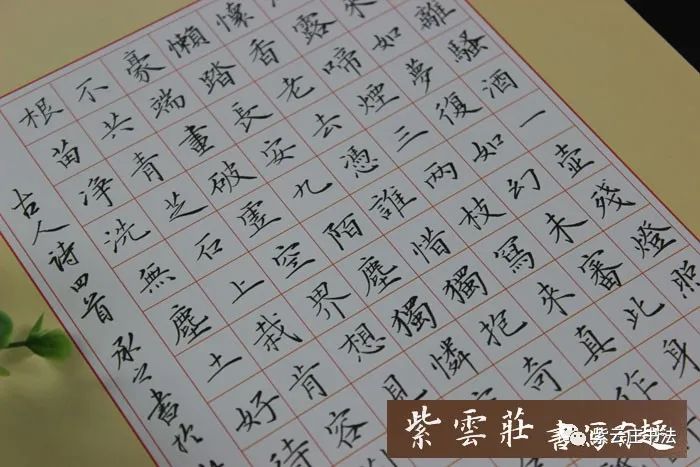 離騷酒一壺殘燈照
如夢復如幻未審此身
露啼煙三兩枝寫來真作
懷香老去憑誰惜獨抱奇
懶踏長安九陌塵獨憐
豪端畫破虛空界想見
不共青芝石上栽肯容
根苗淨洗無塵土好待
古人詩四首 承之書於
紫雲莊
紫云庄书法